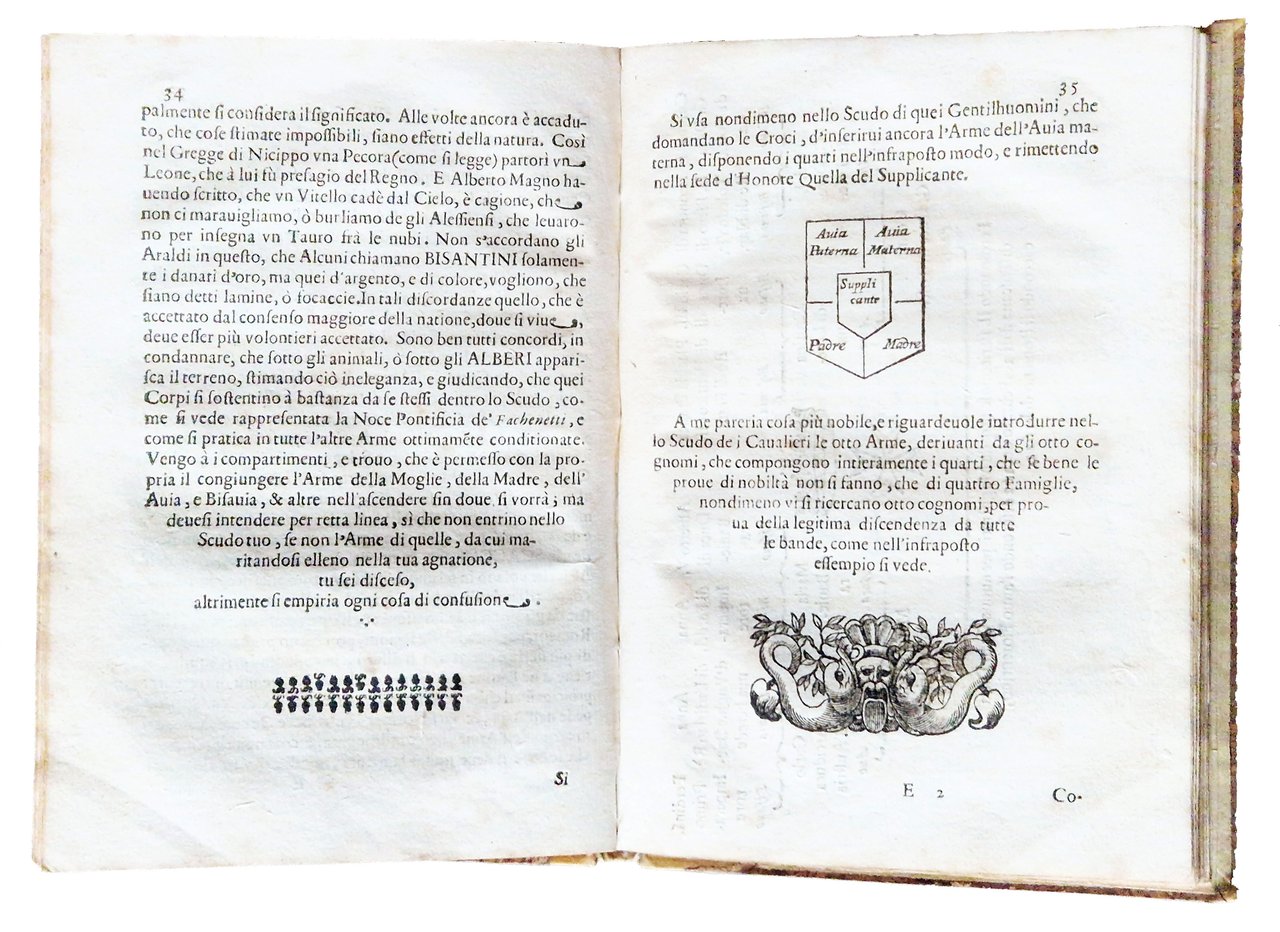 34
palmente ſi conſidera il ſignificato. Alle volte ancora è accadu-
to, che coſe ſtimate impoſſibili, ſiano effetti della natura. Così
nel Gregge di Nicippo vna Pecora (come ſi legge) partorì vn
Leone, che à lui fù preſagio del Regno. E Alberto Magno ha-
uendo ſcritto, che vn Vitello cadè dal Cielo, è cagione, che
non ci marauigliamo, ò burliamo de gli Aleſſienſi, che leuaro-
no per inſegna vn Tauro frà le nubi. Non s'accordano gli
Araldi in queſto, che Alcuni chiamano BISANTINI ſolamen-
te i danari d'oro, ma quei d'argento, e di colore, vogliono, che
ſiano detti lamine, ò focaccie. In tali diſcordanze quello, che è
accettato dal conſenſo maggiore della natione, doue ſi viue,
deue eſſer più volontieri accettato. Sono ben tutti concordi, in
condannare, che ſotto gli animali, ò ſotto gli ALBERI appari-
ſca il terreno, ſtimando ciò ineleganza, e giudicando, che quei
Corpi ſi ſoſtentino à baſtanza da ſe ſteſſi dentro lo Scudo, co-
me ſi vede rappreſentata la Noce Pontificia de' Fachenetti, e
come ſi pratica in tutte l'altre Arme ottimamẽte conditionate.
Vengo à i compartimenti, e trouo, che è permeſſo con la pro-
pria il congiungere l'Arme della Moglie, della Madre, dell'
Auia, e Biſauia, & altre nell'aſcendere ſin doue ſi vorrà; ma
deueſi intendere per retta linea, sì che non entrino nello
Scudo tuo, ſe non l'Arme di quelle, da cui ma-
ritandoſi elleno nella tua agnatione,
tu ſei diſceſo,
altrimente ſi empiria ogni coſa di confuſione.
Si
35
Si vſa nondimeno nello Scudo di quei Gentilhuomini, che
domandano le Croci, d'inſerirui ancora l'Arme dell'Auia ma-
terna, diſponendo i quarti nell'infrapoſto modo, e rimettendo
nella ſede d'Honore Quella del Supplicante.
Auia Auia
Paterna Materna
Suppli
cante
Padre Madre
A me pareria coſa più nobile, e riguardeuole introdurre nel-
lo Scudo de i Caualieri le otto Arme, deriuanti da gli otto co-
gnomi, che compongono intieramente i quarti, che ſe bene le
proue di nobiltà non ſi fanno, che di quattro Famiglie,
nondimeno vi ſi ricercano otto cognomi, per pro-
ua della legitima diſcendenza da tutte
le bande, come nell'infrapoſto
eſſempio ſi vede.
E 2
Co-